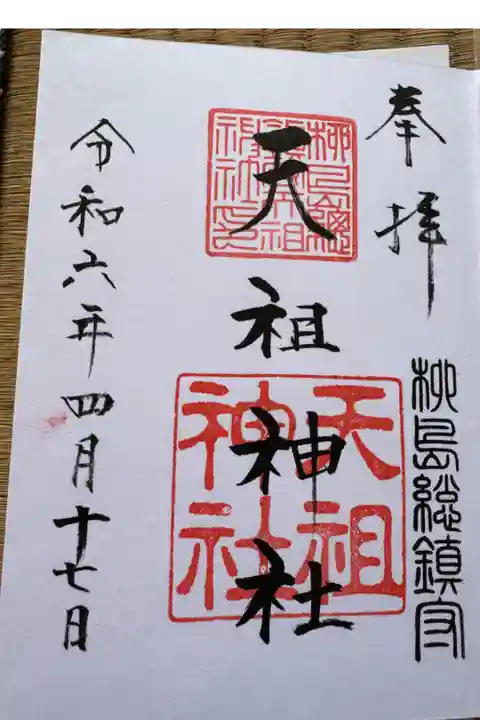 奉拝
柳島総鎮守
天祖神社
天祖神社
令和六年四月十七日